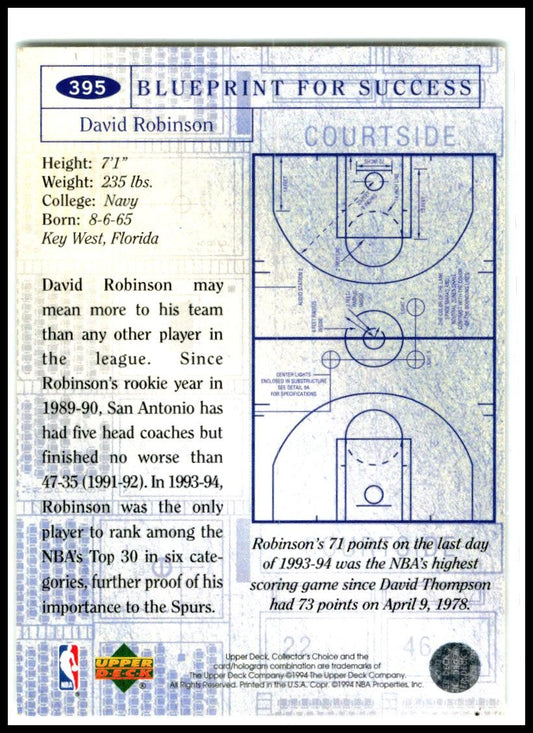 395
BLUEPRINT FOR SUCCESS
David Robinson
COURTSIDE
Height: 7'1"
Weight: 235 lbs.
College: Navy
Born: 8-6-65
Key West, Florida
David Robinson may
mean more to his team
than any other player in
the league. Since
Robinson's rookie year in
1989-90, San Antonio has
had five head coaches but
finished no worse than
47-35 (1991-92). In 1993-94,
Robinson was the only
player to rank among the
NBA's Top 30 in six cate-
gories, further proof of his
importance to the Spurs.
CENTER LIGHTS
ENCLOSED IN SUBSTRUCTURE
SEE DETAIL 64
FOR SPECIFICATIONS
Robinson's 71 points on the last day
of 1993-94 was the NBA's highest
scoring game since David Thompson
had 73 points on April 9, 1978.
22
46
NBA
UPPER
DECK
Upper Deck, Collector's Choice and the
card/hologram combination are trademarks of
The Upper Deck Company ©1994 The Upper Deck Company.
All Rights Reserved. Printed in the U.S.A. Copr. ©1994 NBA Properties, Inc.